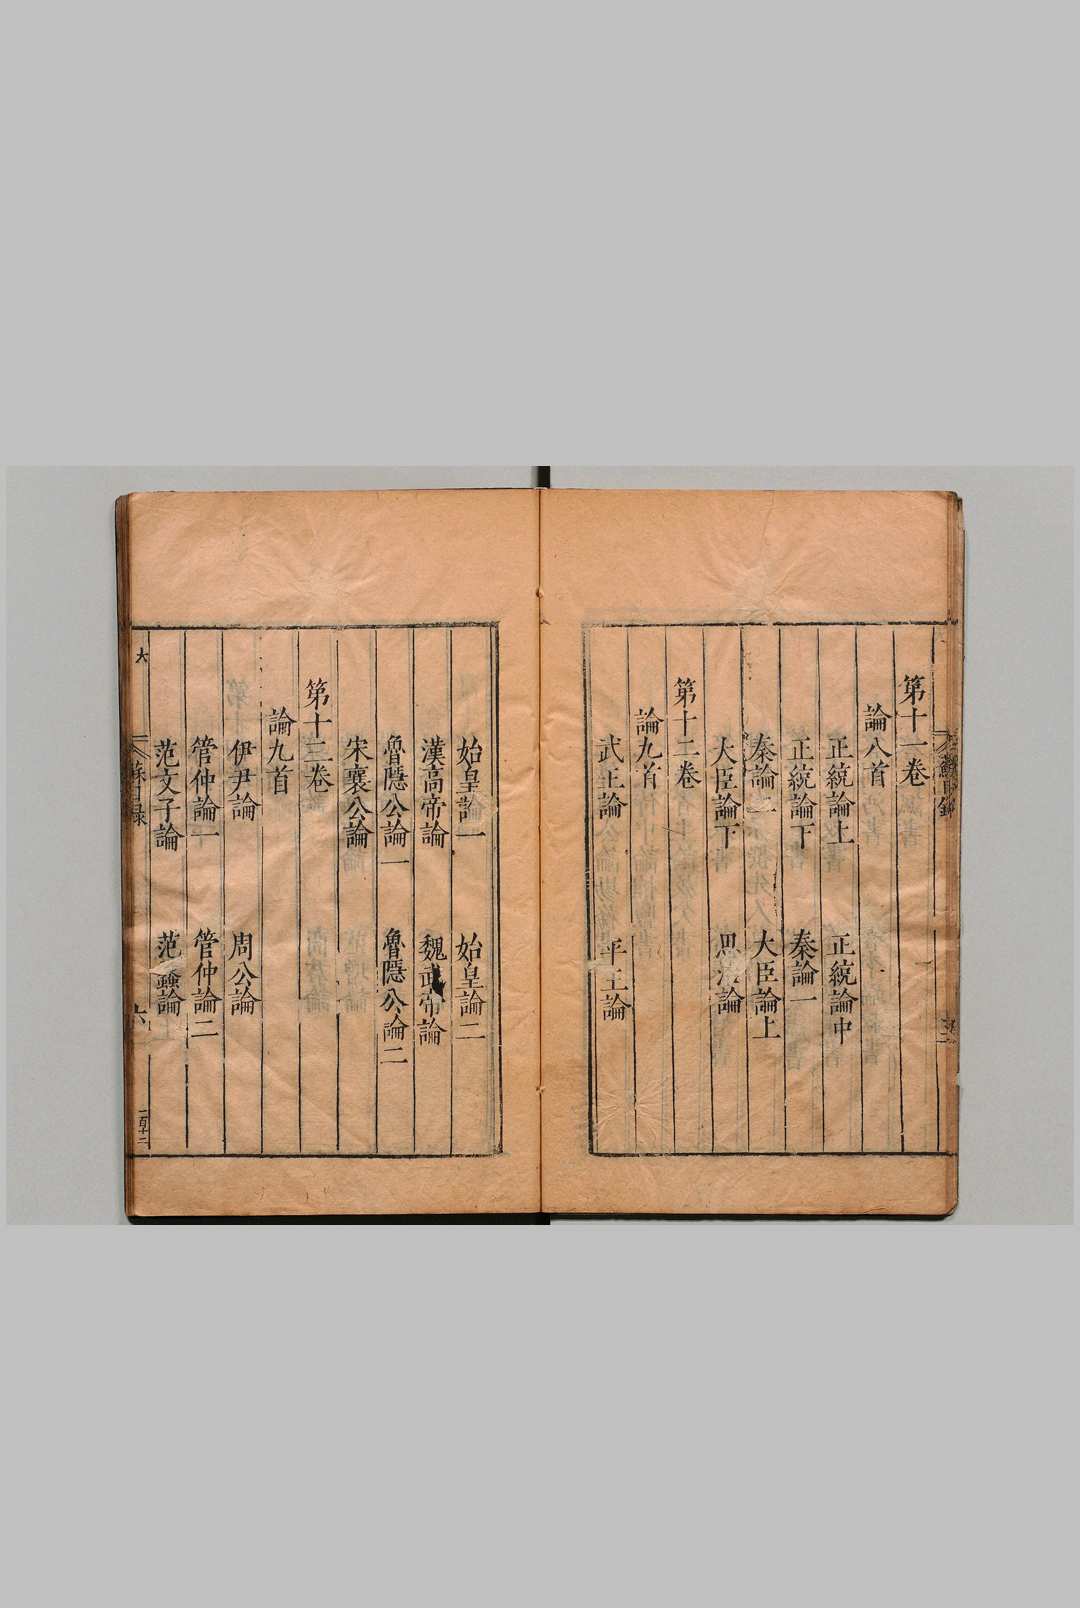 第十一卷
論八首
正統論上 正統論中
正統論下 秦論一
秦論二 大臣論上
大臣論下 思治論
第十二卷
論九首
武王論 平王論
始皇論一 始皇論二
漢高帝論 魏武帝論
魯隱公論一 魯隱公論二
宋襄公論
第十三卷
論九首
伊尹論 周公論
管仲論一 管仲論二
范文子論 范蠡論
大
蘇目録
六
一百十二